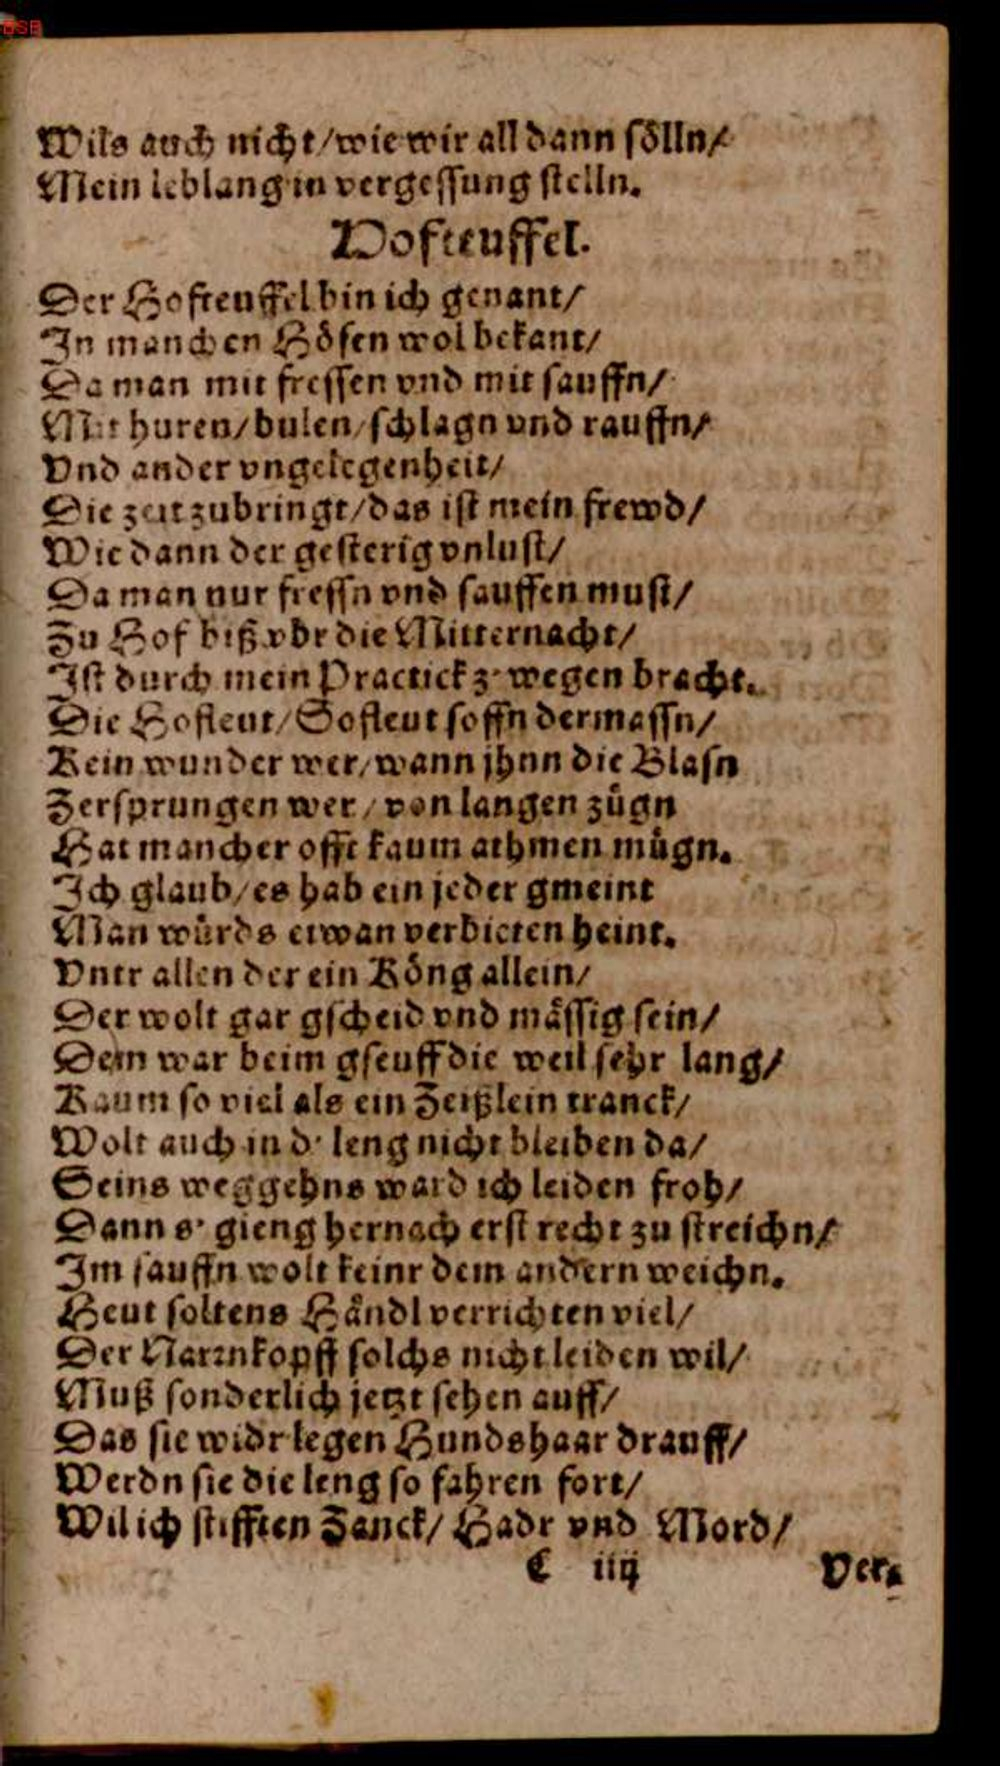 BSB
Wils auch nicht/wie wir all dann sölln/
Mein leblang in vergessung stelln.
Hofteuffel.
Der Hofteuffel bin ich genant/
In manchen Höfen wol bekant/
Da man mit fressen vnd mit sauffn/
Mit huren/bulen/schlagn vnd rauffn/
Vnd ander vngelegenheit/
Die zeit zubringt/das ist mein frewd/
Wie dann der gesterig vnlust/
Da man nur fressn vnd sauffen must/
Zu Hof biß vbr die Mitternacht/
Ist durch mein Practick z' wegen bracht.
Die Hofleut/Sofleut soffn dermassn/
Kein wunder wer/wann jhnn die Blasn
Zersprungen wer/von langen zügn
Hat mancher offt kaum athmen mügn.
Ich glaub/es hab ein jeder gmeint
Man würds etwan verbieten heint.
Vntr allen der ein Köng allein/
Der wolt gar gscheid vnd mässig sein/
Dem war beim gseuff die weil sehr lang/
Kaum so viel als ein Zeißlein tranck/
Wolt auch in d' leng nicht bleiben da/
Seins weggehns ward ich leiden froh/
Dann s' gieng hernach erst recht zu streichn/
Im sauffn wolt keinr dem andern weichn.
Heut soltens Händl verrichten viel/
Der Narrnkopff solchs nicht leiden wil/
Muß sonderlich jetzt sehen auff/
Das sie widr legen Hundshaar drauff/
Werdn sie die leng so fahren fort/
Wil ich stifften Zanck/Hadr vnd Mord/
C iiij Ver-